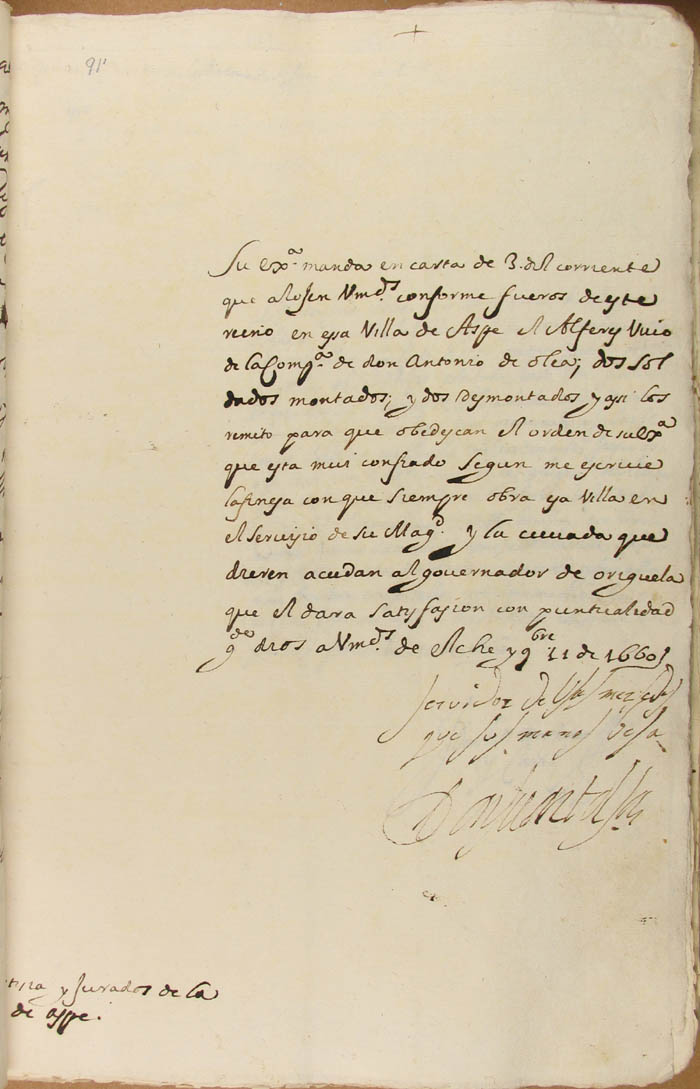 91
+
Su exª manda en carta de 3. del corriente
que alojen Vmds. conforme fueros de este
reino en esa Villa de Aspe el Alferes Vivo
de la Compª. de don Antonio de olea; dos Sol
dados montados; y dos Desmontados y asi los
remito para que obedescan el orden de su exª
que esta mui confiado segun me escrive
la finesa con que siempre obra esa Villa en
el servisio de su Magd. y la cevada que
dieren acudan al governador de origuela
que el dara satisfasion con puntualidad
gde dios a Vmds. de Elche y 9bre 11 de 1660
servidor de Vs mercedes
que sus manos besa
Don Juan
tisia y Jurados de la
de aspe.